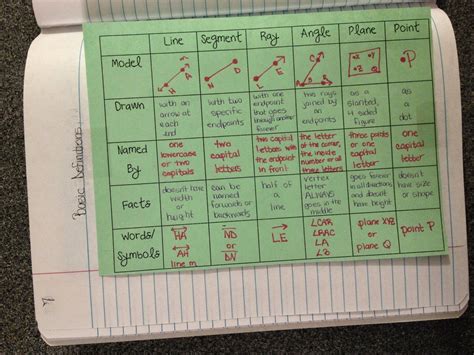 Basic Definitions
Line Segment Ray Angle Plane Point
Model
H A m
N D
L E
C A R 2
X Y Z Q
P
Drawn
with an arrow at each end
with two specific endpoints
with one endpoint that goes through another forever
has rays joined by an endpoint
as a slanted, 4 sided figure
as a dot
Named By
one lowercase or two capitals
two capital letters
two capital letters with the endpoint in front
the letter of the corner, the inside number or all three letters
three points or one capital letter
one capital letter
Facts
doesn't have width or height
can be named forwards or backwards
half of a line
vertex letter ALWAYS goes in the middle
goes forever in all directions and doesn't have height
doesn't have size or shape
Words/ Symbols
HA
AH
line m
ND
or
DN
LE
∠CAR
∠RAC
∠A
∠2
plane XYZ
or
plane Q
point P